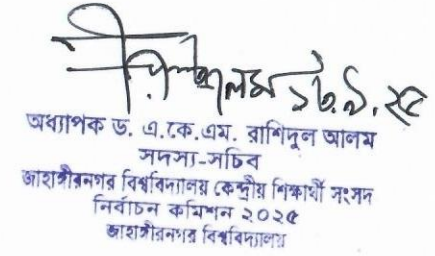 ১৮.৯.২৫
অধ্যাপক ড. এ.কে.এম. রাশিদুল আলম
সদস্য-সচিব
জাহাঙ্গীরনগর বিশ্ববিদ্যালয় কেন্দ্রীয় শিক্ষার্থী সংসদ
নির্বাচন কমিশন ২০২৫
জাহাঙ্গীরনগর বিশ্ববিদ্যালয়